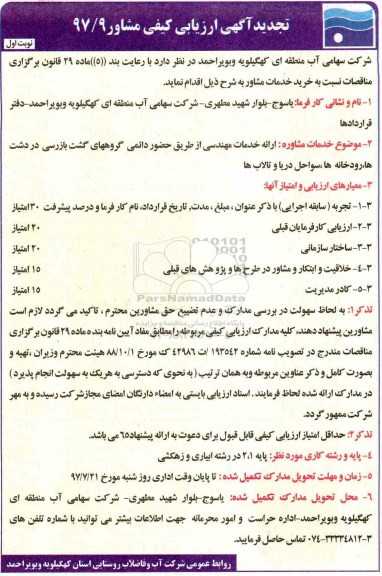 تجدید آگهی ارزیابی کیفی مشاور ۹۷/۹
نوبت اول
شرکت سهامی آب منطقه ای کهگیلویه وبویراحمد در نظر دارد با رعایت بند ((۵))ماده ۲۹ قانون برگزاری
مناقصات نسبت به خرید خدمات مشاور به شرح ذیل اقدام نماید.
۱- نام و نشانی کار فرما: یاسوج-بلوار شهید مطهری- شرکت سهامی آب منطقه ای کهگیلویه وبویراحمد-دفتر
قراردادها
۲-موضوع خدمات مشاوره: ارائه خدمات مهندسی از طریق حضور دائمی گروههای گشت بازرسی در دشت
ها،رودخانه ها ،سواحل دریا و تالاب ها
۳-معیارهای ارزیابی و امتیاز آنها:
۳-۱- تجربه ( سابقه اجرایی) با ذکر عنوان ، مبلغ ، مدت، تاریخ قرارداد، نام کار فرما و درصد پیشرفت ۳۰امتیاز
۳-۲-ارزیابی کارفرمایان قبلی ۲۰ امتیاز
۳-۳-ساختار سازمانی ۲۰ امتیاز
۳-۴- خلاقیت و ابتکار و مشاور در طرح ها و پژوهش های قبلی ۱۵ امتیاز
۳-۵- کادر مدیریت ۱۵ امتیاز
ParsNamadData
پایگاه اطلاع رسانی مناقصه و مزایده
تذکر۱: به لحاظ سهولت در بررسی مدارک و عدم تضییع حق مشاورین محترم ، تاکید می گردد لازم است
مشاورین پیشنهاد دهنده، کلیه مدارک ارزیابی کیفی مربوطه رامطابق مفاد آیین نامه بند ده ماده ۲۹ قانون برگزاری
مناقصات مندرج در تصویب نامه شماره ۱۹۳۵۴۲ /ت ۴۲۹۸۶ ک مورخ ۸۸/۱۰/۱ هیئت محترم وزیران ،تهیه و
بصورت کامل و ذکر عناوین مربوطه وبه همان ترتیب ( به نحوی که دسترسی به هریک به سهولت انجام پذیرد )
در مدارک ارائه شده لحاظ فرمایند . اسناد ارزیابی بایستی به امضاء دارندگان امضای مجازشرکت رسیده و به مهر
شرکت ممهور گردد.
تذکر۲: حداقل امتیاز ارزیابی کیفی قابل قبول برای دعوت به ارائه پیشنهاد۶۵ می باشد.
۴- پایه و رشته کاری مورد نظر: پایه ۲،۱ در رشته آبیاری و زهکشی
۵- زمان و مهلت تحویل مدارک تکمیل شده : تا پایان وقت اداری روز شنبه مورخ ۹۷/۷/۲۱
۶- محل تحویل مدارک تکمیل شده: یاسوج-بلوار شهید مطهری- شرکت سهامی آب منطقه ای
کهگیلویه وبویراحمد-اداره حراست و امور محرمانه جهت اطلاعات بیشتر می توانید با شماره تلفن های
۳-۰۷۴-۳۳۳۳۴۸۱۲ تماس حاصل فرمایید.
روابط عمومی شرکت آب وفاضلاب روستایی استان کهگیلویه وبویراحمد